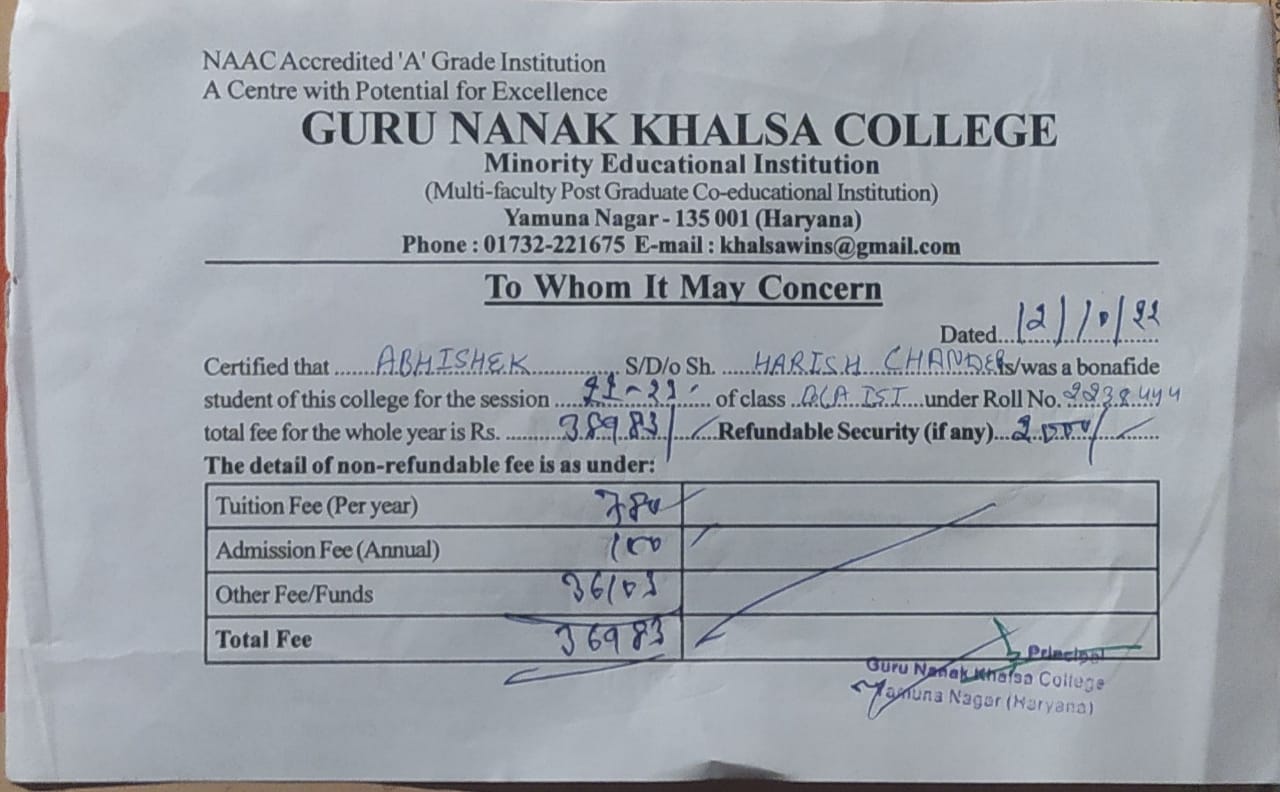 NAAC Accredited 'A' Grade Institution
A Centre with Potential for Excellence
GURU NANAK KHALSA COLLEGE
Minority Educational Institution
(Multi-faculty Post Graduate Co-educational Institution)
Yamuna Nagar - 135 001 (Haryana)
Phone : 01732-221675 E-mail : khalsawins@gmail.com
To Whom It May Concern
Dated... 12/10/22
Certified that ...... ABHISHEK ............. S/D/o Sh. ..... HARISH CHANDER is/was a bonafide
student of this college for the session ..... 22-23 ....... of class .. BCA IST ... under Roll No. 2238444
total fee for the whole year is Rs. .......... 38983/- ..... Refundable Security (if any)... 2000/- ......
The detail of non-refundable fee is as under:
Tuition Fee (Per year) 780
Admission Fee (Annual) 100
Other Fee/Funds 36103
Total Fee 36983
Principal
Guru Nanak Khalsa College
Yamuna Nagar (Haryana)